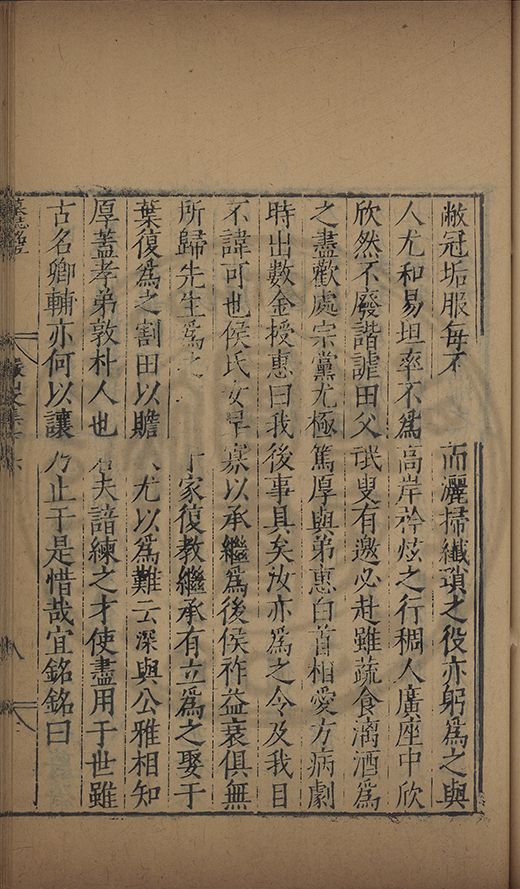 敝冠垢服每不而灑掃纖瑣之役亦躬為之與
人尤和易坦率不為高岸矜炫之行稠人廣座中欣
欣然不廢諧謔田父氓叟有邀必赴雖蔬食漓酒為
之盡歡處宗黨尤極篤厚與弟惠白首相愛方病劇
時出數金授惠曰我後事具矣汝亦為之令及我目
不諱可也侯氏女早寡以承繼為後侯祚益衰俱無
所歸先生為之于家復教繼承有立為之娶于
葉復為之割田以贍尤以為難云深與公雅相知
厚蓋孝弟敦朴人也若夫諳練之才使盡用于世雖
古名卿輔亦何以讓乃止于是惜哉宜銘銘曰
墓誌
八